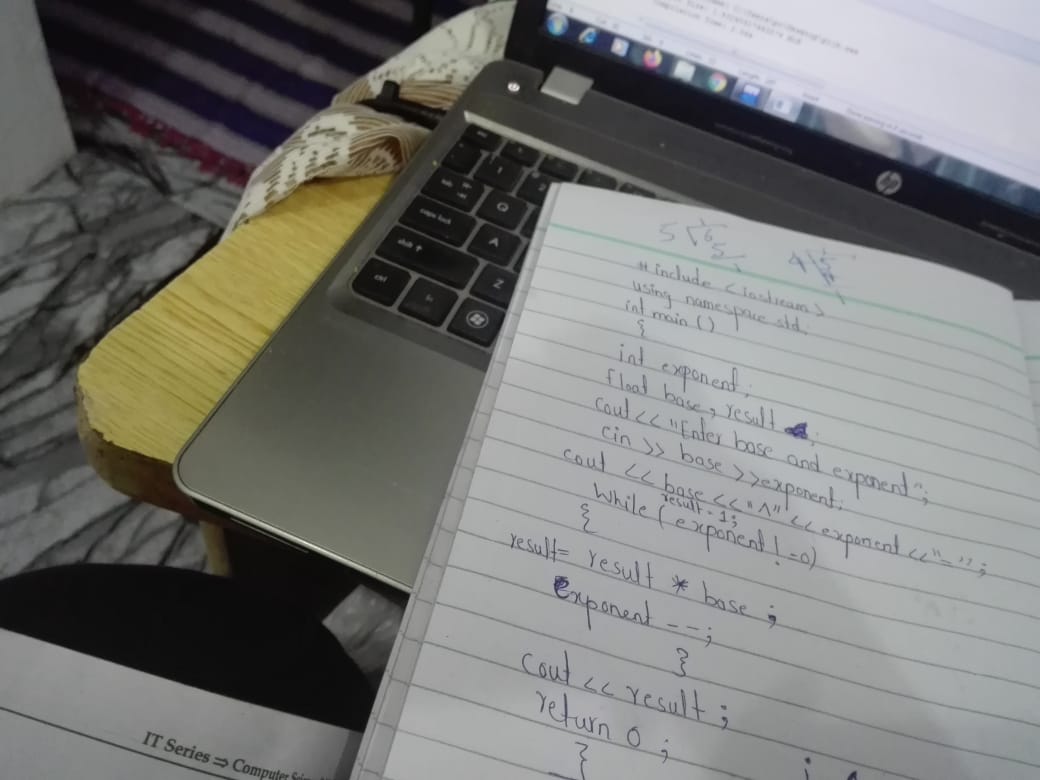 hp
caps lock
Q
A
shift ↑
Z
ctrl
fn
5 6
5
# include <iostream>
using namespace std;
int main ()
{
int exponent;
float base, result ;
cout<< "Enter base and exponent";
cin >> base >>exponent;
cout << base << "^" << exponent << "=";
result = 1;
While ( exponent ! =0)
{
result= result * base ;
Exponent --;
}
cout << result ;
return 0 ;
}
IT Series ⇒ Computer